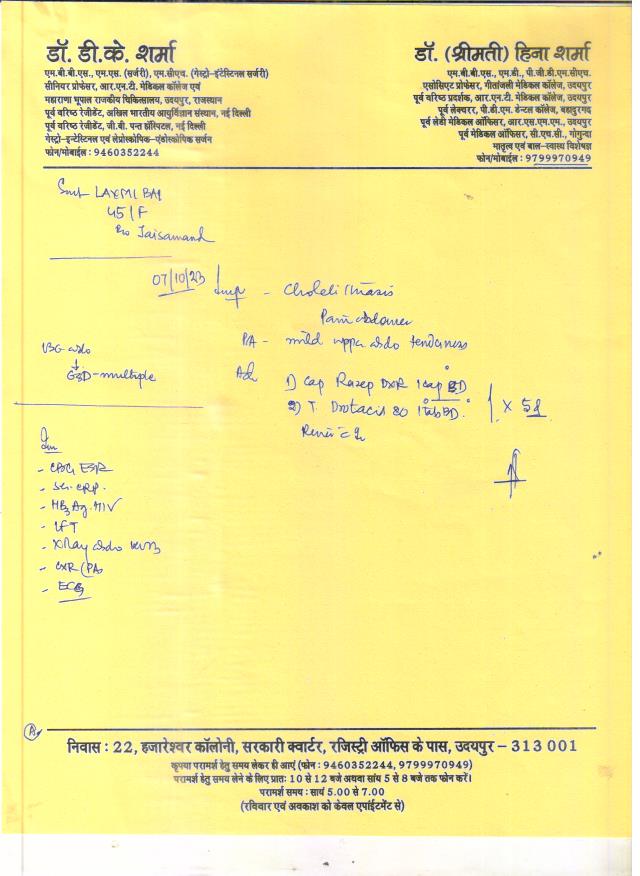 डॉ. डी.के. शर्मा
एम.बी.बी.एस., एम.एस. (सर्जरी), एम.सीएच. (गेस्ट्रो-इंटेस्टिनल सर्जरी)
सीनियर प्रोफेसर, आर.एन.टी. मेडिकल कॉलेज एवं
महाराणा भूपाल राजकीय चिकित्सालय, उदयपुर, राजस्थान
पूर्व वरिष्ठ रेजीडेंट, अखिल भारतीय आयुर्विज्ञान संस्थान, नई दिल्ली
पूर्व वरिष्ठ रेजीडेंट, जी.बी. पन्त हॉस्पिटल, नई दिल्ली
गेस्ट्रो-इन्टेस्टिनल एवं लेप्रोस्कोपिक-एंडोस्कोपिक सर्जन
फोन/मोबाईल : 9460352244
डॉ. (श्रीमती) हिना शर्मा
एम.बी.बी.एस., एम.डी., पी.जी.डी.एम.सीएच.
एसोसिएट प्रोफेसर, गीतांजली मेडिकल कॉलेज, उदयपुर
पूर्व वरिष्ठ प्रदर्शक, आर.एन.टी. मेडिकल कॉलेज, उदयपुर
पूर्व लेक्चरर, पी.डी.एम. डेन्टल कॉलेज, बहादुरगढ़
पूर्व लेडी मेडिकल ऑफिसर, आर.एस.एम.एम., उदयपुर
पूर्व मेडिकल ऑफिसर, सी.एच.सी., गोगुन्दा
मातृत्व एवं बाल-स्वास्थ्य विशेषज्ञ
फोन/मोबाईल : 9799970949
Smt LAXMI BAI
45/F
R/o Jaisamand
07/10/23 Imp - Cholelithiasis
Pain abdomen
PA - mild uppa abdo tenderness
USG abdo
GBD-multiple
Adv 1) Cap Razep DXR 1 cap BD
2) T. Drotacis 80 1 tab BD. } X 5d
Review c̄
- CBC, ESR
- Se. CRP.
- HBsAg. HIV
- LFT
- XRay abdo KUB
- CXR (PA)
- ECG
निवास : 22, हजारेश्वर कॉलोनी, सरकारी क्वार्टर, रजिस्ट्री ऑफिस के पास, उदयपुर – 313 001
कृपया परामर्श हेतु समय लेकर ही आएं (फोन : 9460352244, 9799970949)
परामर्श हेतु समय लेने के लिए प्रातः 10 से 12 बजे अथवा सांय 5 से 8 बजे तक फोन करें।
परामर्श समय : सायं 5.00 से 7.00
(रविवार एवं अवकाश को केवल एपांईटमेंट से)